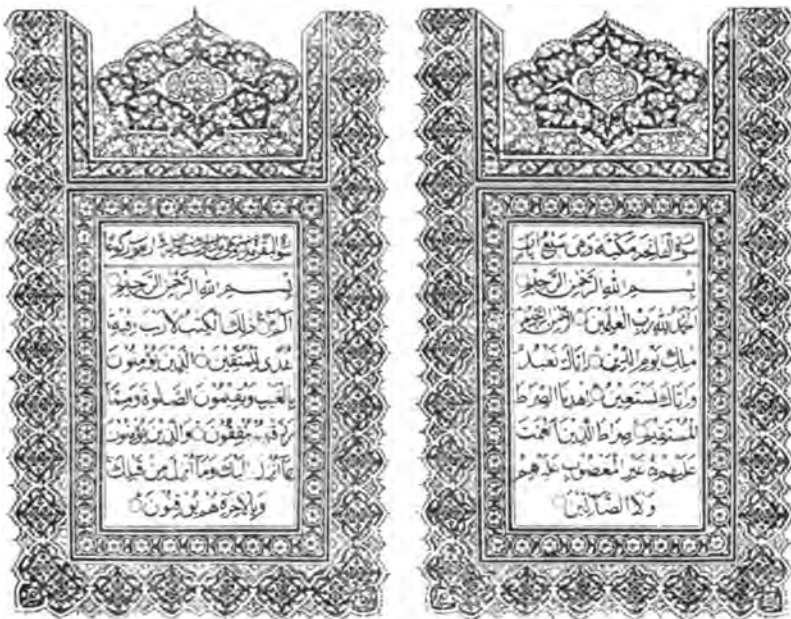 سورة الفاتحة مكية وهي سبع ايات
بِسْمِ اللهِ الرَّحْمٰنِ الرَّحِيمِ
اَلْحَمْدُ لِلّٰهِ رَبِّ الْعٰلَمِينَ ۝ الرَّحْمٰنِ الرَّحِيمِ
مٰلِكِ يَوْمِ الدِّينِ ۝ اِيَّاكَ نَعْبُدُ
وَاِيَّاكَ نَسْتَعِينُ ۝ اِهْدِنَا الصِّرٰطَ
الْمُسْتَقِيمَ ۝ صِرٰطَ الَّذِينَ اَنْعَمْتَ
عَلَيْهِمْ ۝ غَيْرِ الْمَغْضُوبِ عَلَيْهِمْ
وَلَا الضَّآلِّينَ ۝
سورة البقرة
بِسْمِ اللهِ الرَّحْمٰنِ الرَّحِيمِ ۝
الٓمٓ ۝ ذٰلِكَ الْكِتٰبُ لَا رَيْبَ فِيهِ
هُدًى لِلْمُتَّقِينَ ۝ الَّذِينَ يُؤْمِنُونَ
بِالْغَيْبِ وَيُقِيمُونَ الصَّلٰوةَ وَمِمَّا
رَزَقْنٰهُمْ يُنْفِقُونَ ۝ وَالَّذِينَ يُؤْمِنُونَ
بِمَآ اُنْزِلَ اِلَيْكَ وَمَآ اُنْزِلَ مِنْ قَبْلِكَ
وَبِالْاٰخِرَةِ هُمْ يُوقِنُونَ ۝